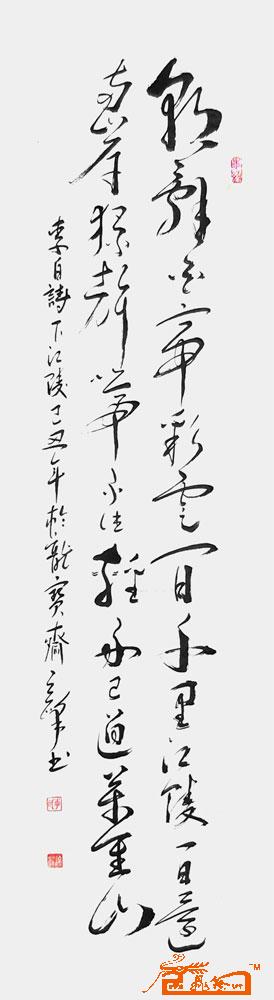 朝辭白帝彩雲間千里江陵一日還
兩岸猿聲啼不住輕舟已過萬重山
李白詩下江陵己丑年於龍寶齋書
TM